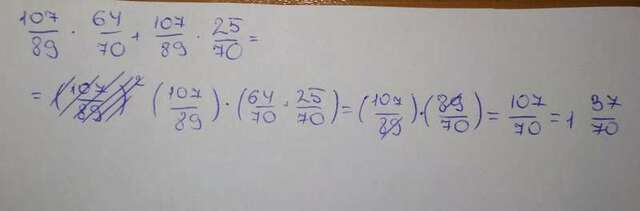 107/89 · 64/70 + 107/89 · 25/70 =
= (107/89) · (64/70 + 25/70) = (107/89) · (89/70) = 107/70 = 1 37/70